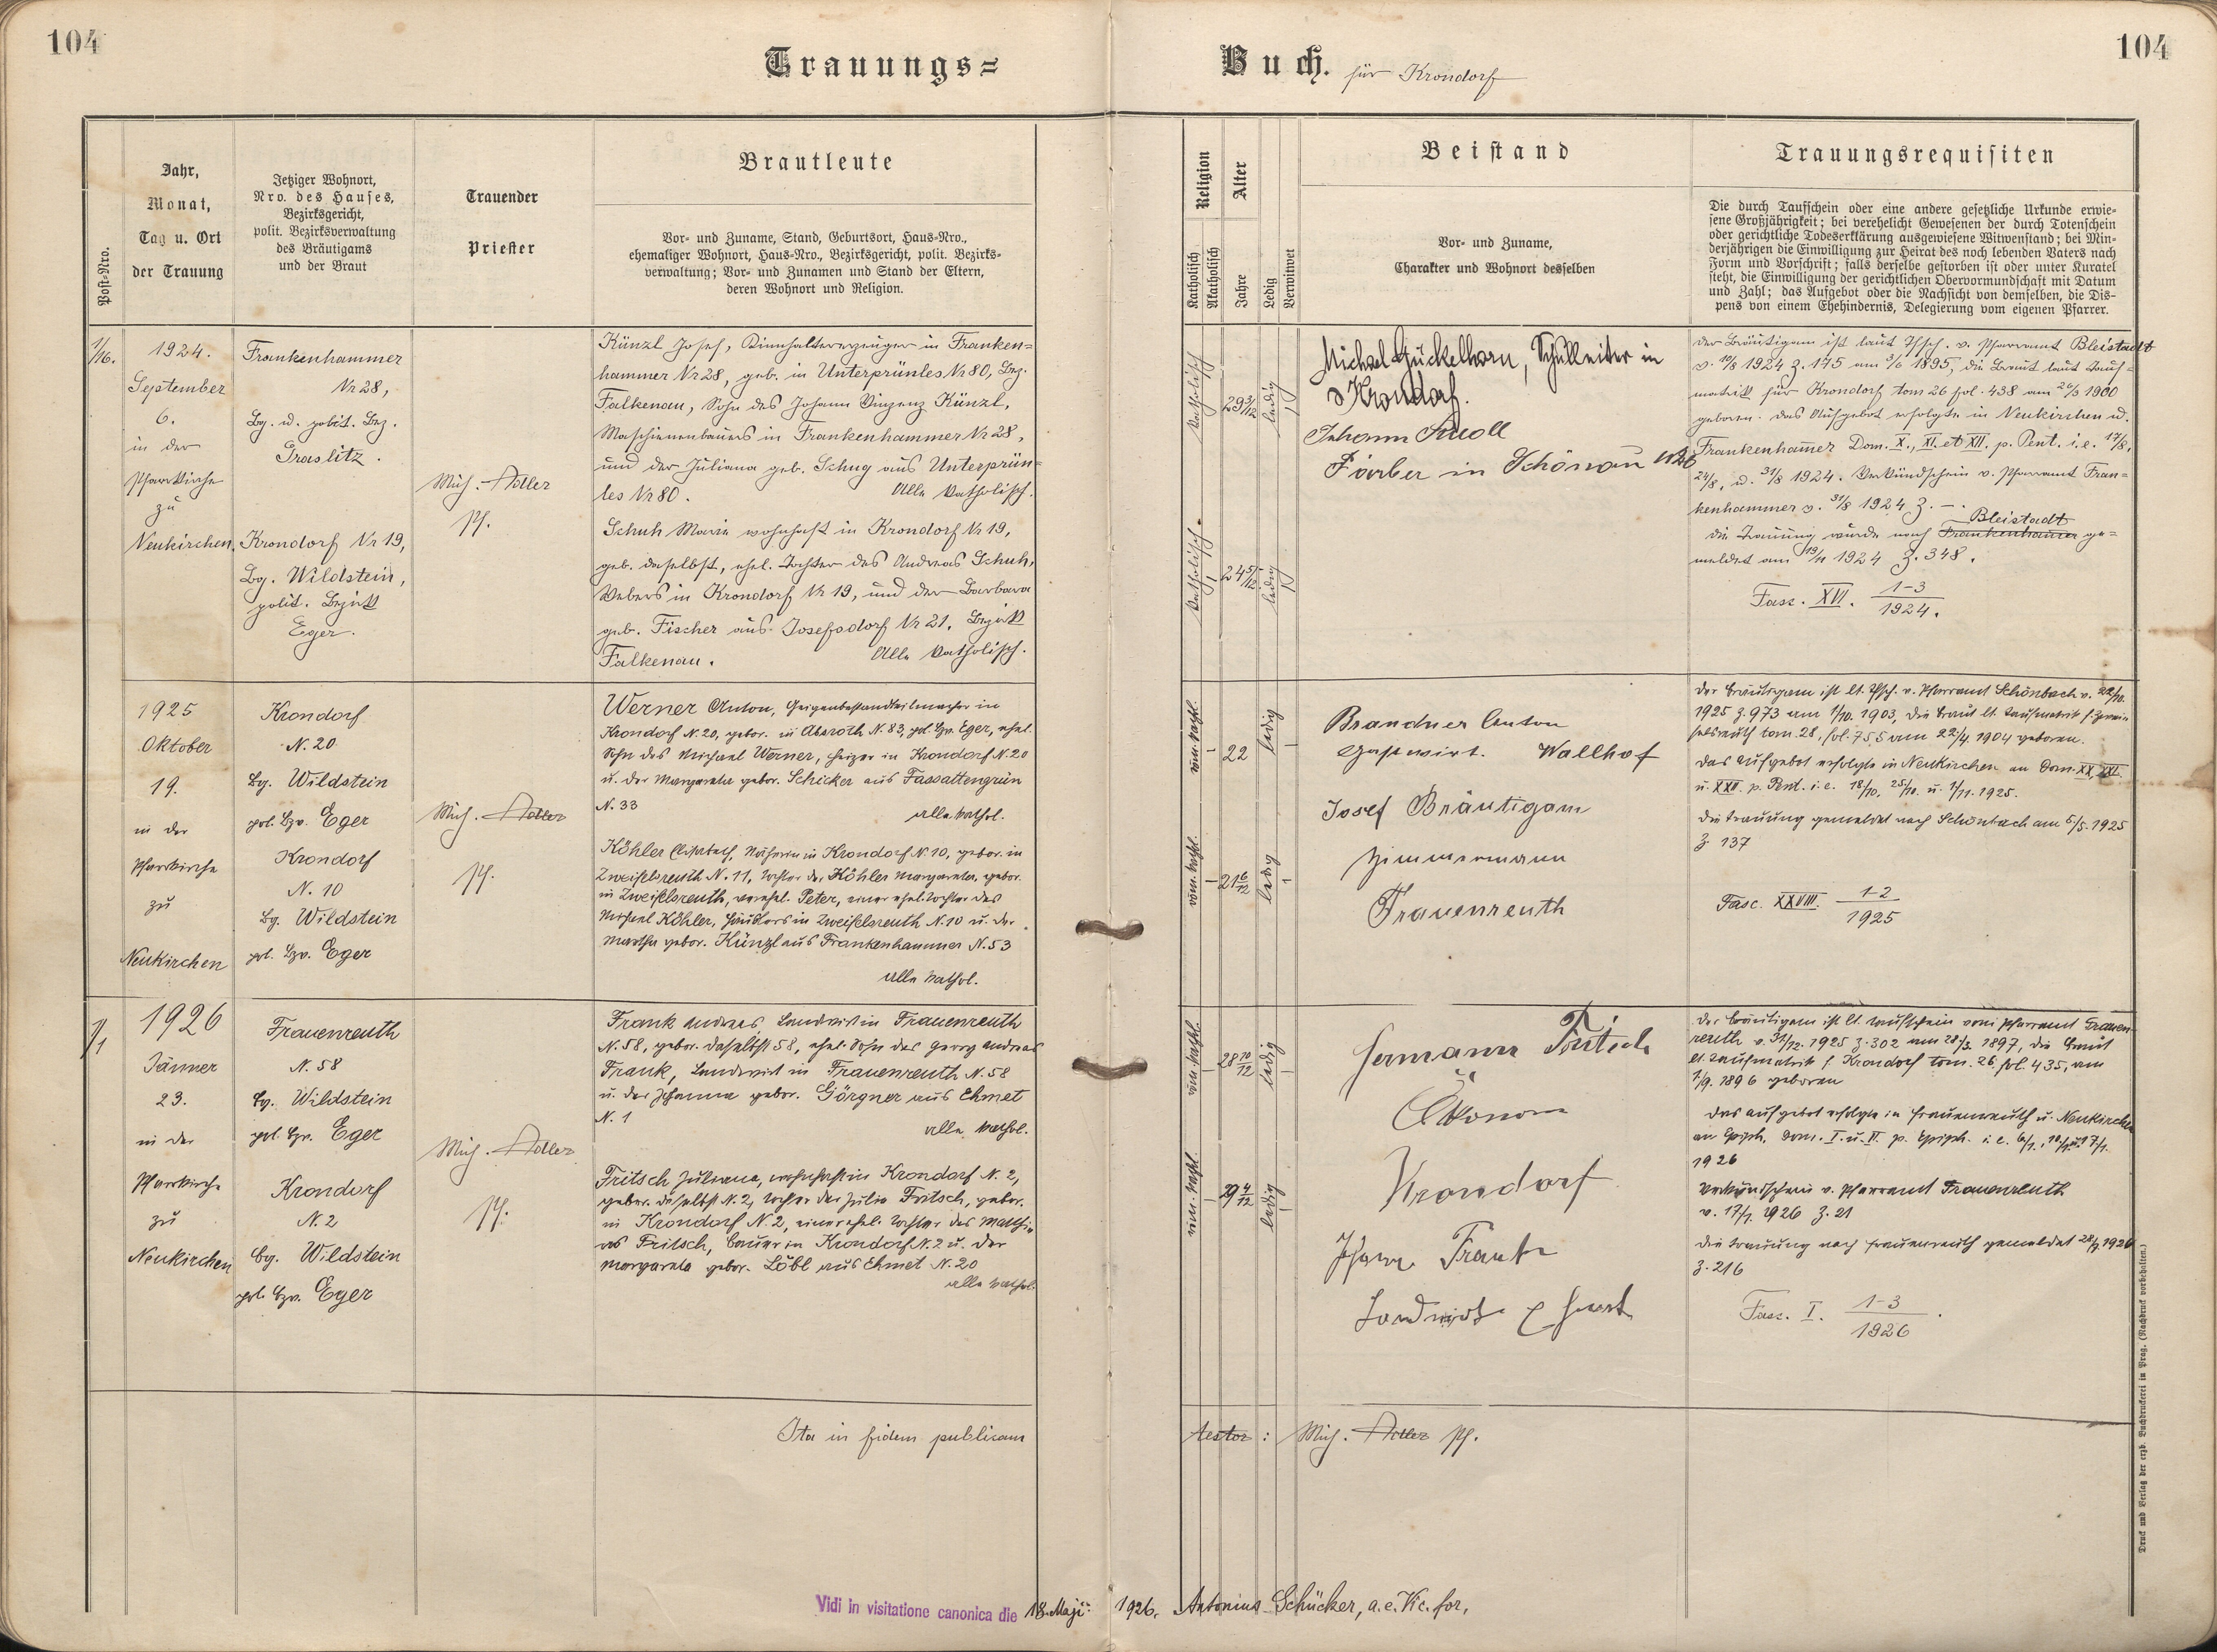 104
Trauungs=
Buch. für Krondorf
104
Post-Nro.
Jahr,
Monat,
Tag u. Ort
der Trauung
Jetziger Wohnort,
Nro. des Hauses,
Bezirksgericht,
polit. Bezirksverwaltung
des Bräutigams
und der Braut
Trauender
Priester
Brautleute
Vor- und Zuname, Stand, Geburtsort, Haus-Nro.,
ehemaliger Wohnort, Haus-Nro., Bezirksgericht, polit. Bezirks-
verwaltung; Vor- und Zunamen und Stand der Eltern,
deren Wohnort und Religion.
Religion
Katholisch
Akatholisch
Alter
Jahre
Ledig
Verwitwet
Beistand
Vor- und Zuname,
Charakter und Wohnort desselben
Trauungsrequisiten
Die durch Taufschein oder eine andere gesetzliche Urkunde erwie-
sene Großjährigkeit; bei verehelicht Gewesenen der durch Totenschein
oder gerichtliche Todeserklärung ausgewiesene Witwenstand; bei Min-
derjährigen die Einwilligung zur Heirat des noch lebenden Vaters nach
Form und Vorschrift; falls derselbe gestorben ist oder unter Kuratel
steht, die Einwilligung der gerichtlichen Obervormundschaft mit Datum
und Zahl; das Aufgebot oder die Nachsicht von demselben, die Dis-
pens von einem Ehehindernis, Delegierung vom eigenen Pfarrer.
1/16.
1924.
September
6.
in der
Pfarrkirche
zu
Neukirchen.
Frankenhammer
Nr 28,
Bg. u. polit. Bez.
Graslitz.
Krondorf Nr 19,
Bg. Wildstein,
polit. Bezirk
Eger.
Mich. Adler
Pf.
Künzl Josef, in Franken=
hammer Nr 28, geb. in Unterprünles Nr 80, Bez.
Falkenau, Sohn des Johann Vinzenz Künzl,
Maschinenbauers in Frankenhammer Nr 28,
und der Juliana geb. Schug aus Unterprün=
les Nr 80. Alle katholisch.
Schuh Maria wohnhaft in Krondorf Nr 19,
geb. daselbst, ehel. Tochter des Andreas Schuh,
Webers in Krondorf Nr 19, und der Barbara
geb. Fischer aus Josefsdorf Nr 21, Bezirk
Falkenau. Alle katholisch.
katholisch
29 3/12
ledig
katholisch.
24 5/12
ledig
Michael Gückelhorn, Schulleiter in
Krondorf.
Johann Knoll
Färber in Schönau
der Bräutigam ist laut Tfsch. v. Pfarramt Bleistadt
v. 10/8 1924 Z. 145 am 3/6 1895, die Braut laut Tauf=
matrik für Krondorf tom 26 fol. 438 am 26/3 1900
geboren. das Aufgebot erfolgte in Neukirchen u.
Frankenhamer Dom. X., XI. et XII. p. Pent. i.e. 17/8,
24/8, u. 31/8 1924. Verkündschein v. Pfarramt Fran=
kenhammer v. 31/8 1924 Z. —.
Bleistadt
die Trauung wurde nach Frankenhamer ge=
meldet am 19/11 1924 Z. 348.
Fasc. XVI. 1-3
1924.
1925
Oktober
19.
in der
Pfarrkirche
zu
Neukirchen
Krondorf
N. 20
Bg. Wildstein
pol. Bzv. Eger
Krondorf
N. 10
Bg. Wildstein
pol. Bzv. Eger
Mich. Adler
Pf.
Werner Anton, Geigenbestandteilmacher in
Krondorf N. 20, gebor. in Absroth N. 83, pol. Bzv. Eger, ehel.
Sohn des Michael Werner, Heizer in Krondorf N. 20
u. der Margareta gebor. Schicker aus Fassattengrün
N. 33 alle kathol.
Köhler Elisabeth, Näherin in Krondorf N. 10, gebor. in
Zweifelsreuth N. 11, Tochter der Köhler Margareta, gebor.
in Zweifelsreuth, verehel. Peter, einer ehel. Tochter des
Michael Köhler, Häuslers in Zweifelsreuth N. 10 u. der
Martha gebor. Künzl aus Frankenhammer N. 53
alle kathol.
röm. kathl.
22
ledig
röm. kathl.
21 6/12
ledig
Brandner Anton
Gastwirt. Wallhof
Josef Bräutigam
Zimmermann
Frauenreuth
Der Bräutigam ist lt. Tfsch. v. Pfarramt Schönbach v. 22/10.
1925 Z. 973 am 1/10. 1903, die Braut lt. Taufmatrik f. Zwei-
felsreuth tom. 28, fol. 755 am 22/4. 1904 geboren.
Das Aufgebot erfolgte in Neukirchen an Dom. XX, XXI.
u. XXII. p. Pent. i. e. 18/10, 25/10. u. 1/11. 1925.
Die Trauung gemeldet nach Schönbach am 6/5. 1925
Z 137
Fasc. XXVIII. 1-2
1925
1/1
1926
Jänner
23.
in der
Pfarrkirche
zu
Neukirchen
Frauenreuth
N. 58
Bg. Wildstein
pol. Bzv. Eger
Krondorf
N. 2
Bg. Wildstein
pol. Bzv. Eger
Mich. Adler
Pf.
Frank Andreas, Landwirt in Frauenreuth
N. 58, gebor. daselbst 58, ehel. Sohn des Georg Andreas
Frank, Landwirt in Frauenreuth N. 58
u. der Johanna gebor. Görgner aus Ehmet
N. 1 alle kathol.
Fritsch Juliana, wohnhaft in Krondorf N. 2,
gebor. daselbst N. 2, Tochter der Julie Fritsch, gebor.
in Krondorf N. 2, einer ehel. Tochter des Matthi-
as Fritsch, Bauer in Krondorf N. 2 u. der
Margareta gebor. Löbl aus Ehmet N. 20
alle kathol.
röm. kathl.
28 10/12
ledig
röm. kathl.
29 4/12
ledig
Hermann Fritsch
Ökonom
Krondorf
Johann Frank
Landwirt
Der Bräutigam ist lt. Taufschein vom Pfarramt Frauen-
reuth v. 31/12. 1925 Z. 302 am 28/3. 1897, die Braut
lt. Taufmatrik f. Krondorf tom. 26, fol. 435, am
1/9. 1896 geboren
Das Aufgebot erfolgte in Frauenreuth u. Neukirchen
an Epiph, Dom. I. u. II. p. Epiph. i. e. 6/1., 10/1. u. 17/1.
1926
Verkündschein v. Pfarramt Frauenreuth
v. 17/1. 1926 Z. 21
Die Trauung nach Frauenreuth gemeldet 1926
Z. 216
Fasc. I. 1-3
1926.
Ita in fidem publicam
testor: Mich. Adler Pf.
Vidi in visitatione canonica die 18. Maji 1926. Antonius Schücker, a.e. Vic. for.
Druck und Verlag der erzb. Buchdruckerei in Prag. (Nachdruck vorbehalten.)